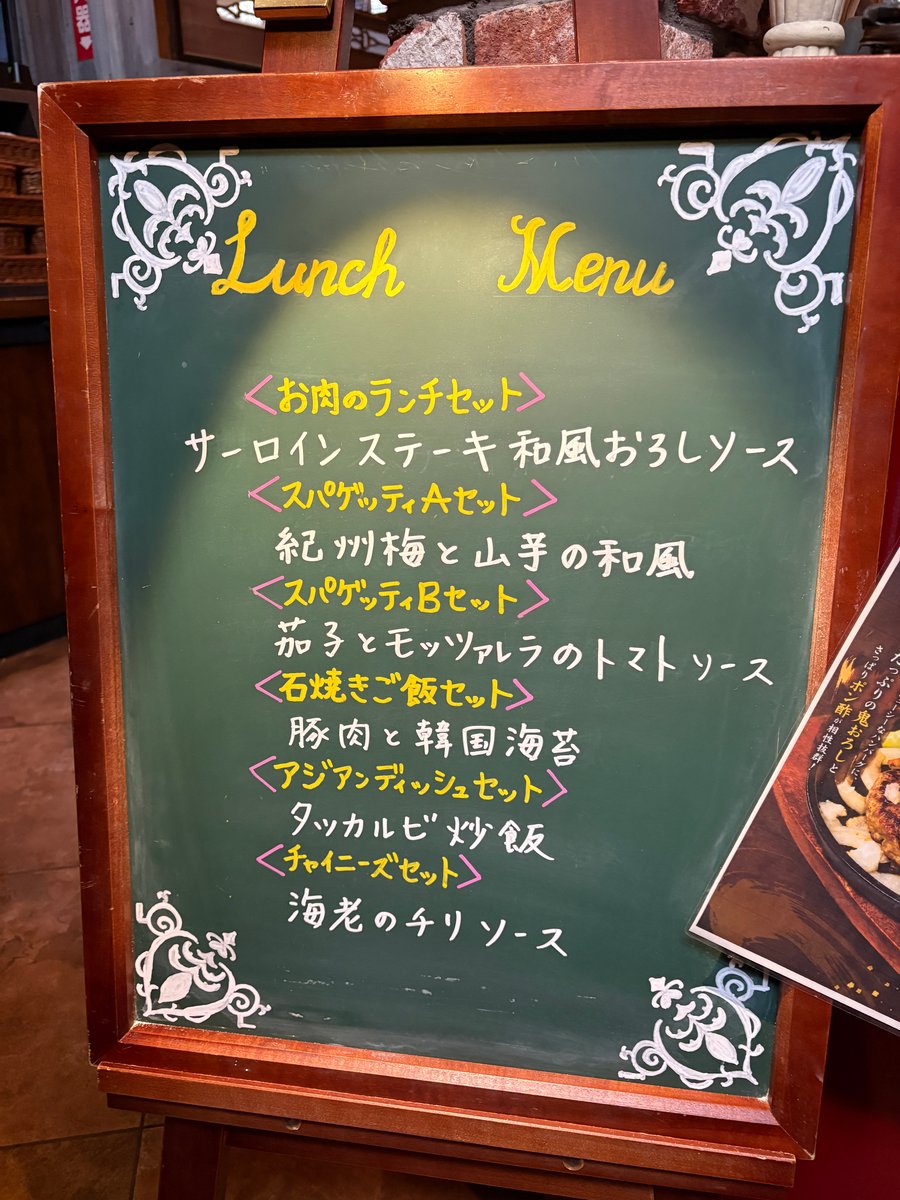 Lunch Menu
<お肉のランチセット>
サーロインステーキ和風おろしソース
<スパゲッティAセット>
紀州梅と山芋の和風
<スパゲッティBセット>
茄子とモッツァレラのトマトソース
<石焼きご飯セット>
豚肉と韓国海苔
<アジアンディッシュセット>
タッカルビ炒飯
<チャイニーズセット>
海老のチリソース
たっぷりの鬼おろしと
さっぱりポン酢が相性抜群!